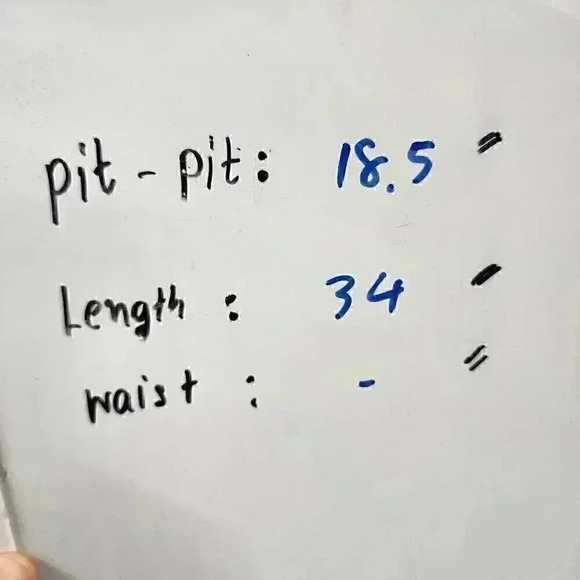 pit - pit : 18.5 "
Length : 34 "
waist : - "